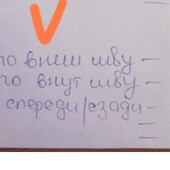 по внеш шву –
го внут шву –
спереди/сзади –